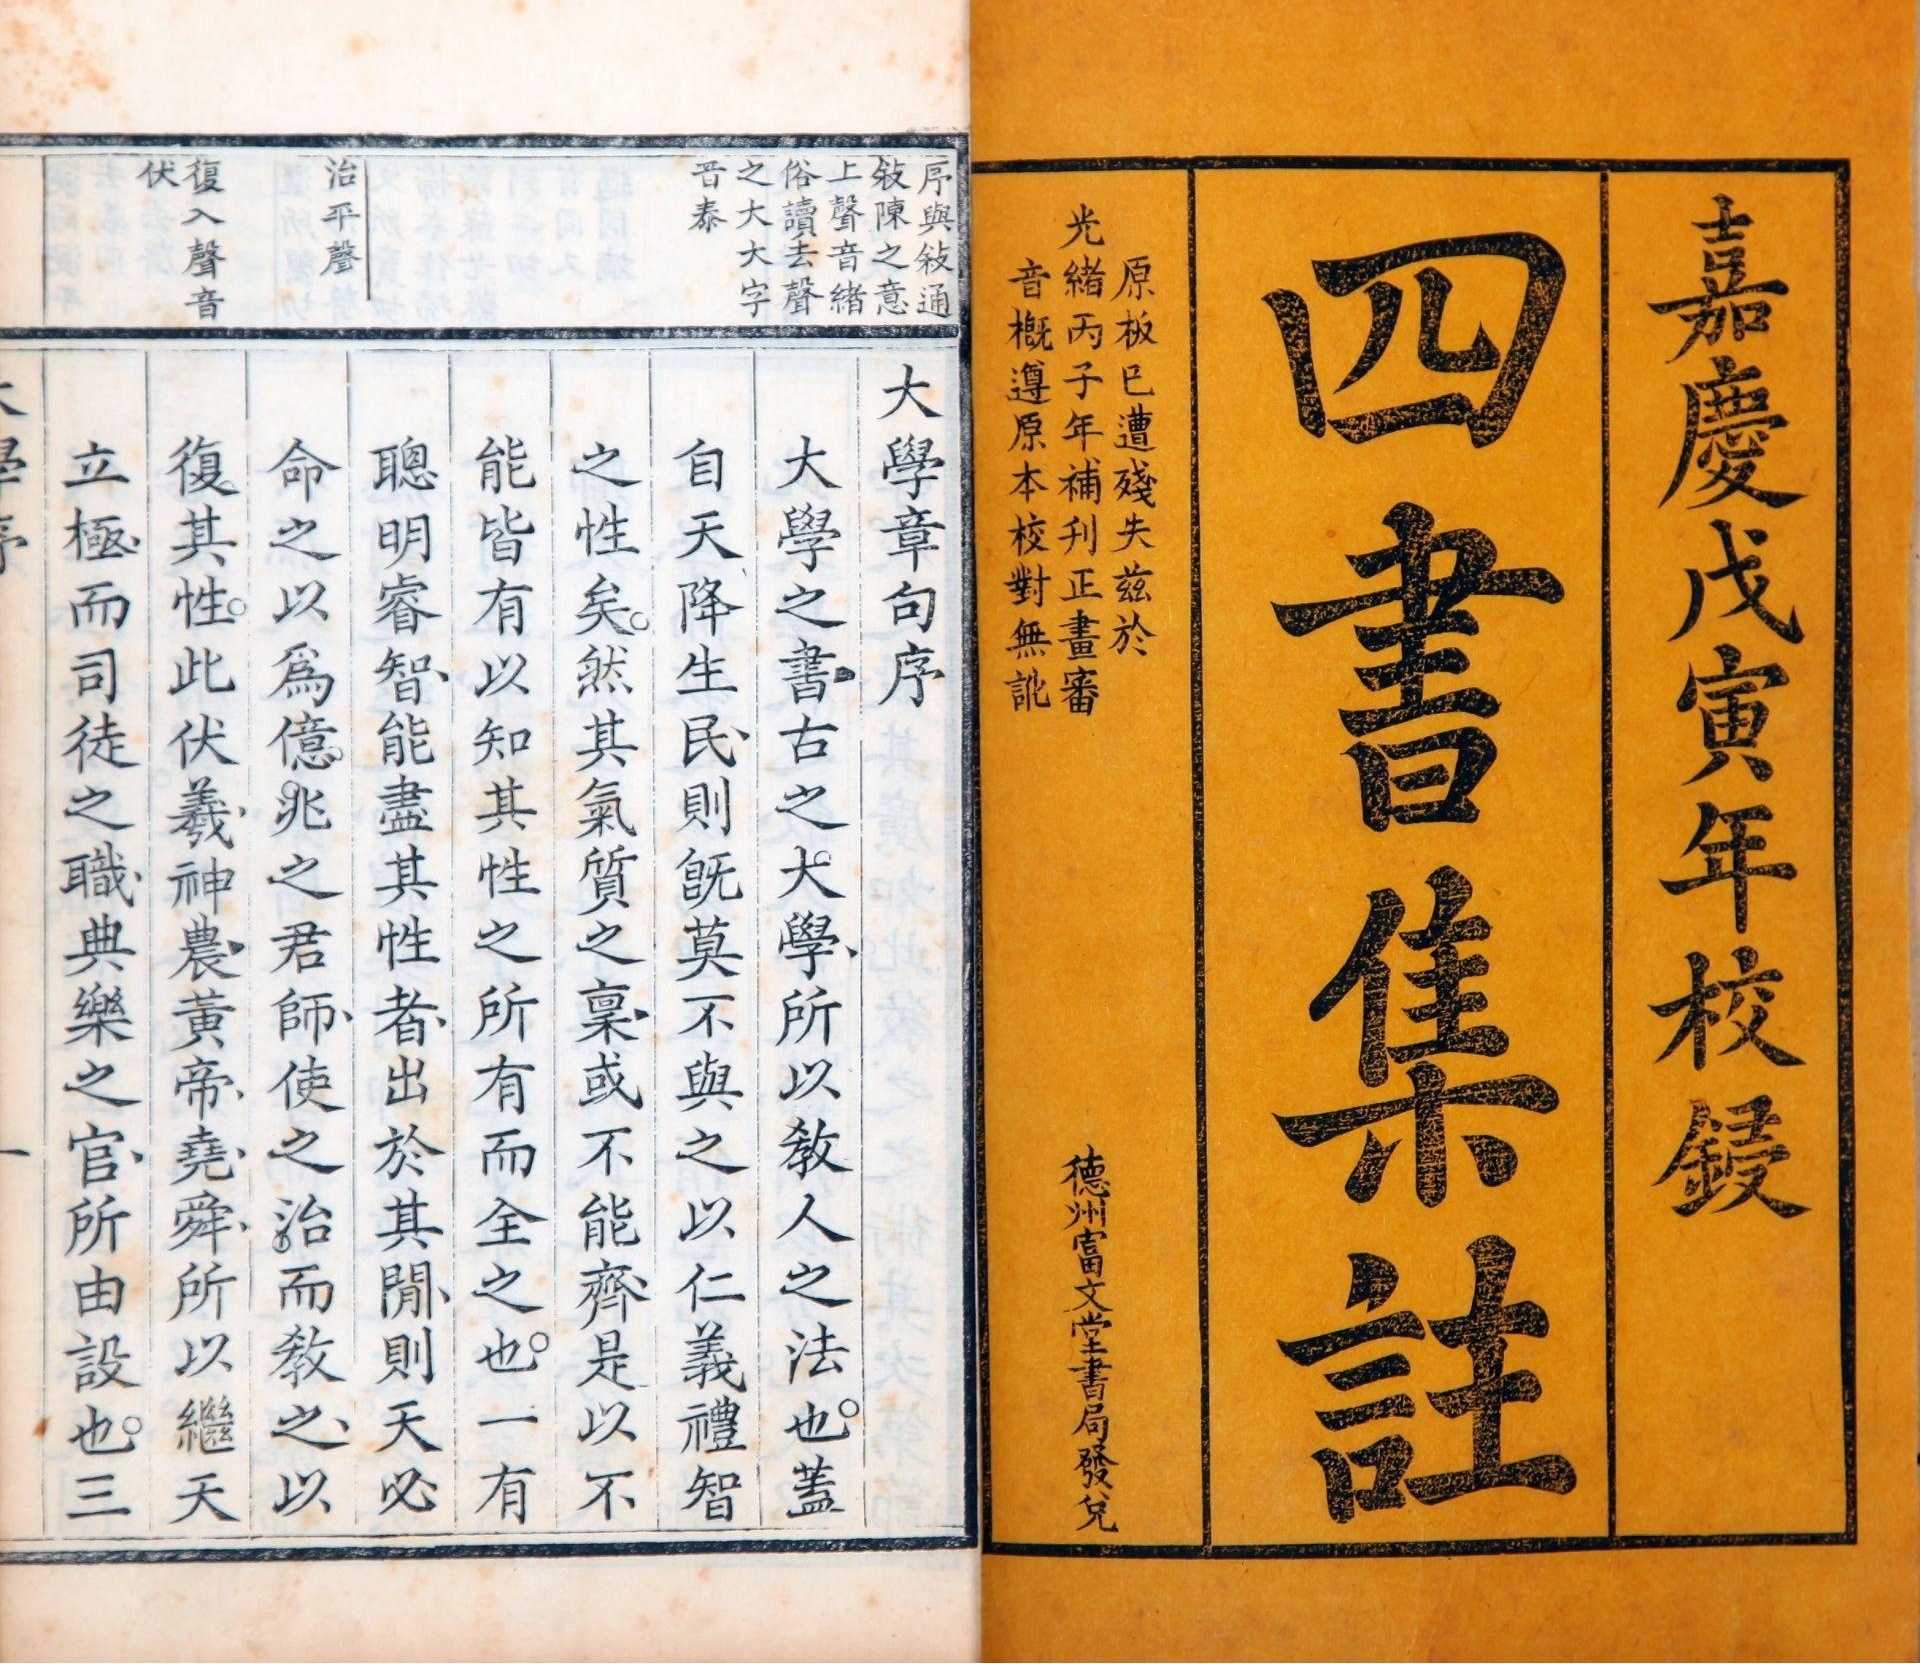 嘉慶戊寅年校鋟
四書集註
原板已遭殘失茲於
光緒丙子年補刊正畫審
音概遵原本校對無訛
德州富文堂書局發兌
序與敍通
敍陳之意
上聲音緒
俗讀去聲
之大大字
音泰
治平聲
復入聲音
伏
大學章句序
大學之書古之大學所以敎人之法也蓋
自天降生民則旣莫不與之以仁義禮智
之性矣然其氣質之稟或不能齊是以不
能皆有以知其性之所有而全之也一有
聰明睿智能盡其性者出於其閒則天必
命之以爲億兆之君師使之治而敎之以
復其性此伏羲神農黃帝堯舜所以繼天
立極而司徒之職典樂之官所由設也三
大學序
一